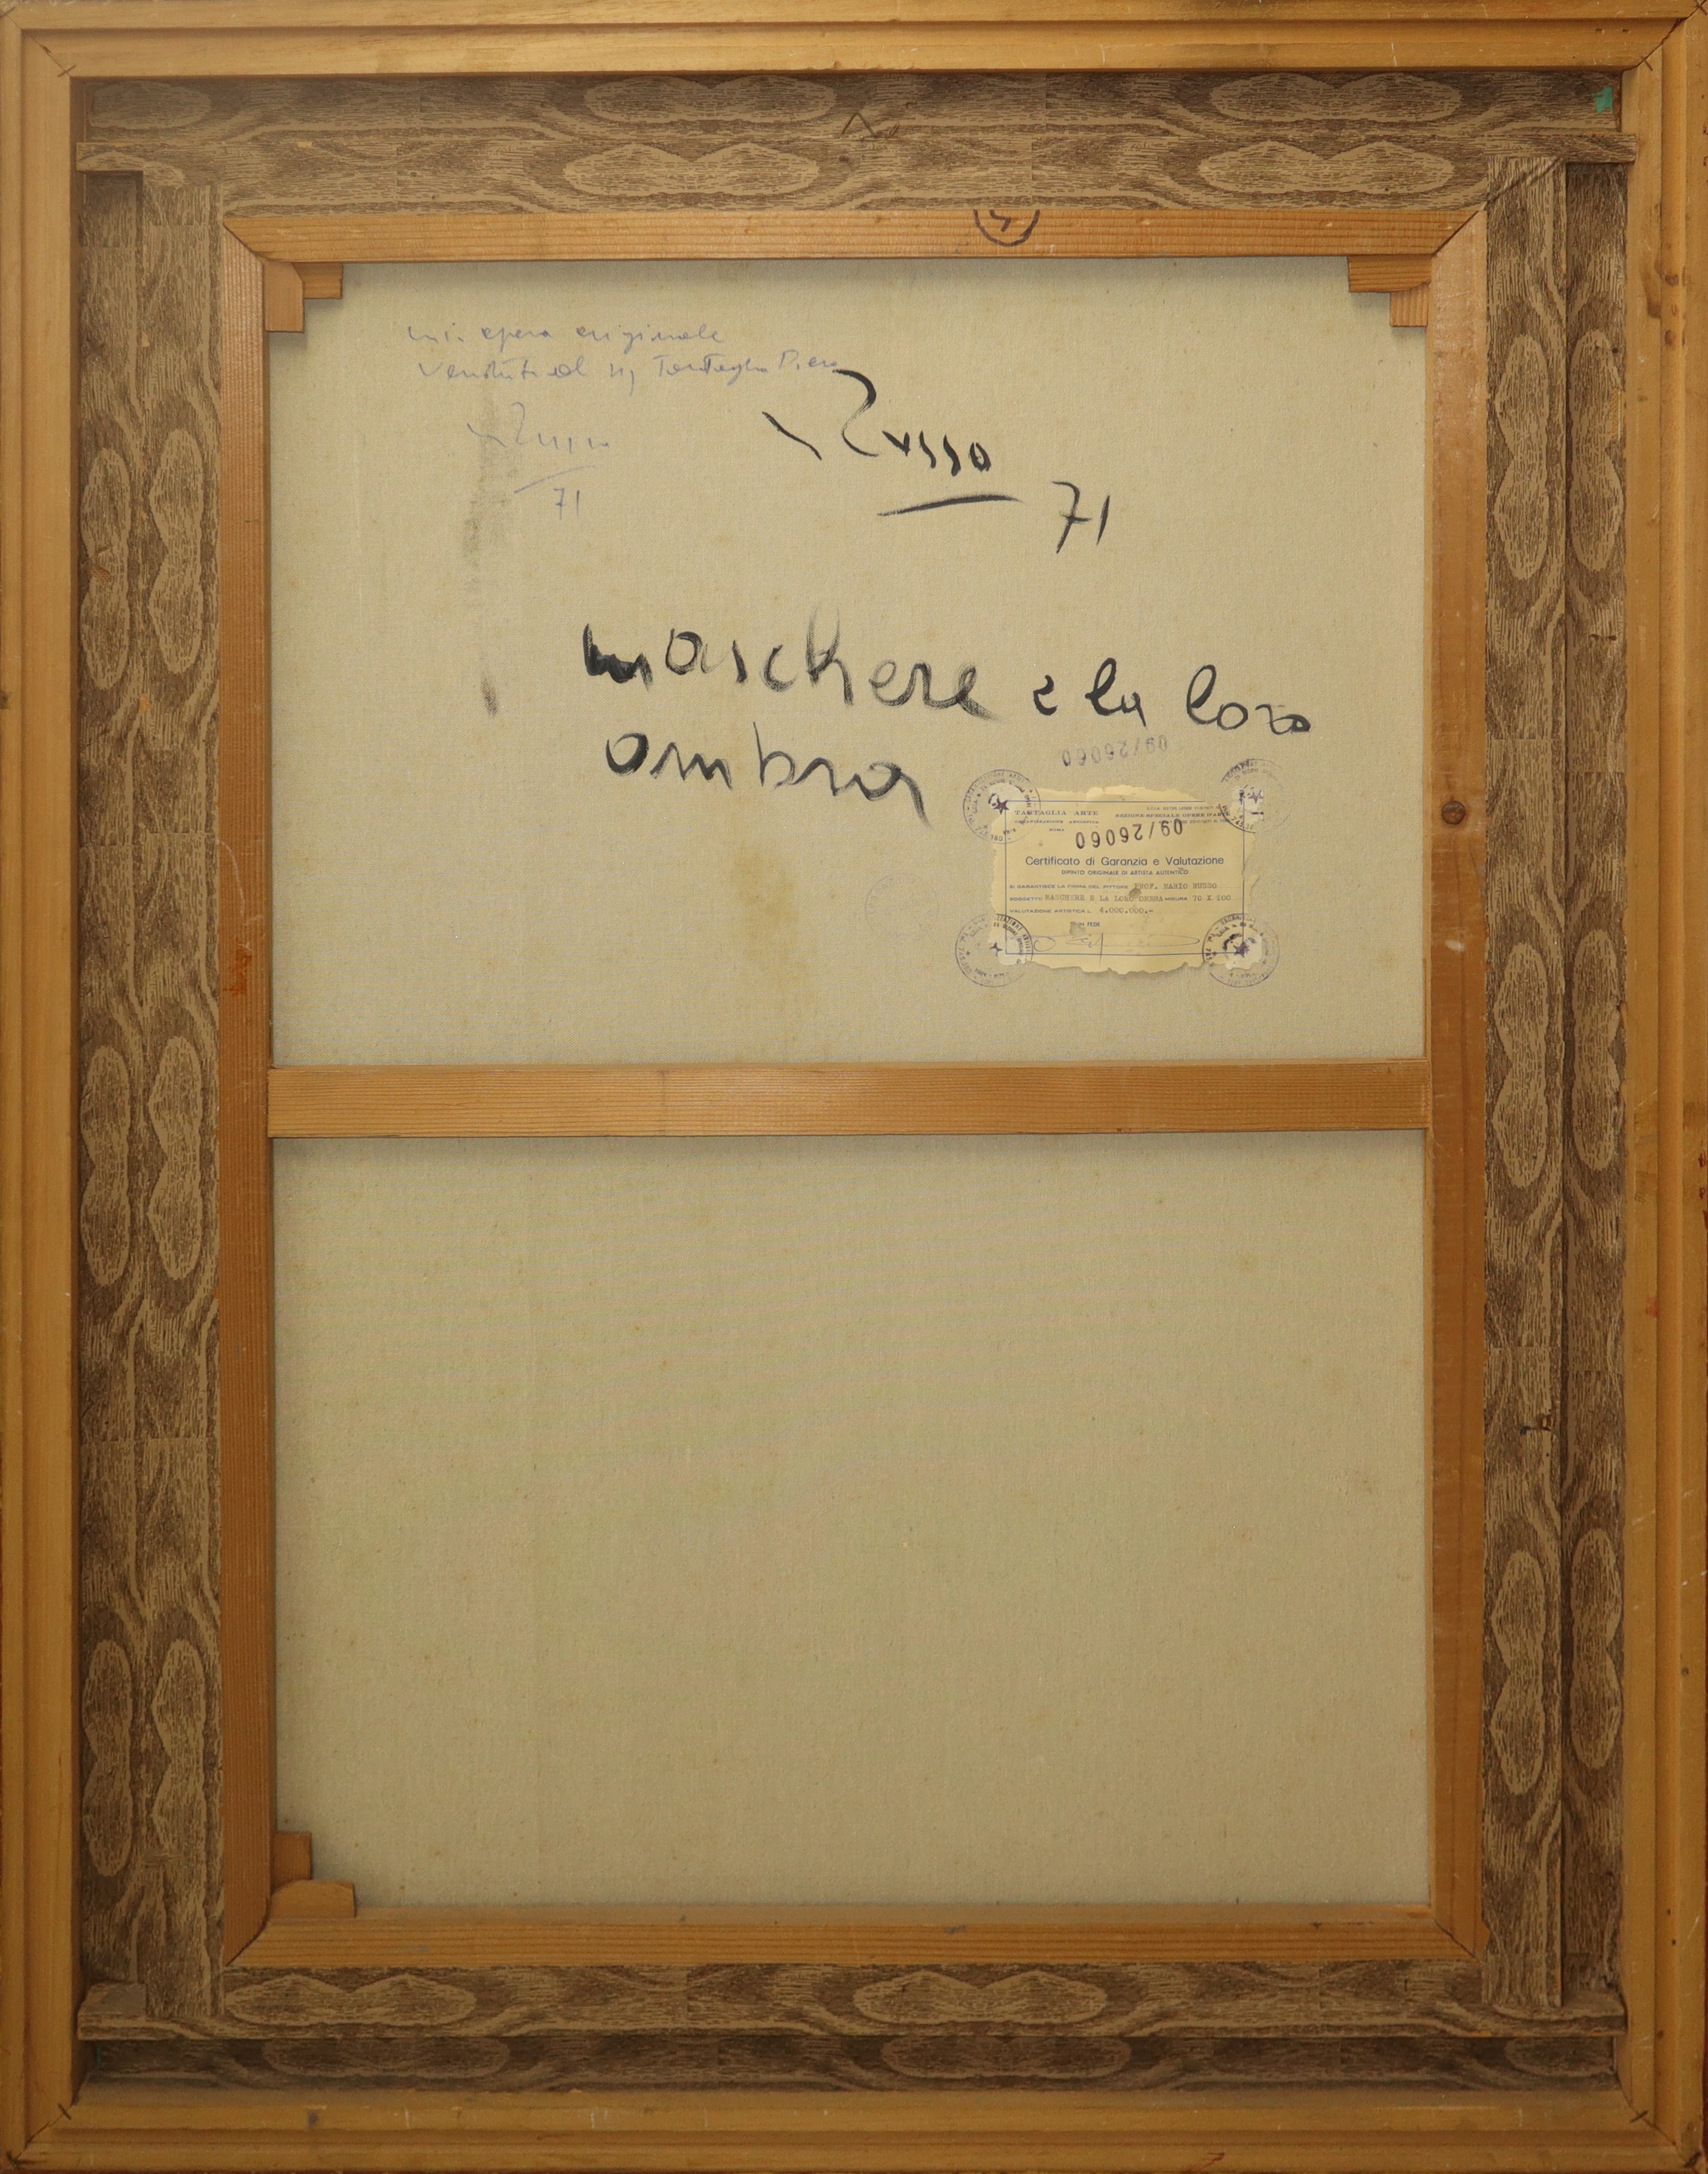 mia opera originale
venduta al sig Tartaglia Piero
Russo
71
Russo
71
maschere e la loro
ombra
09/26060
TARTAGLIA ARTE
ORGANIZZAZIONE ARTISTICA
ROMA
SEZIONE SPECIALE OPERE D'ARTE
09/26060
Certificato di Garanzia e Valutazione
DIPINTO ORIGINALE DI ARTISTA AUTENTICO
SI GARANTISCE LA FIRMA DEL PITTORE PROF. MARIO RUSSO
SOGGETTO MASCHERE E LA LORO OMBRA MISURA 70 X 100
VALUTAZIONE ARTISTICA L. 4.000.000.=
IN FEDE